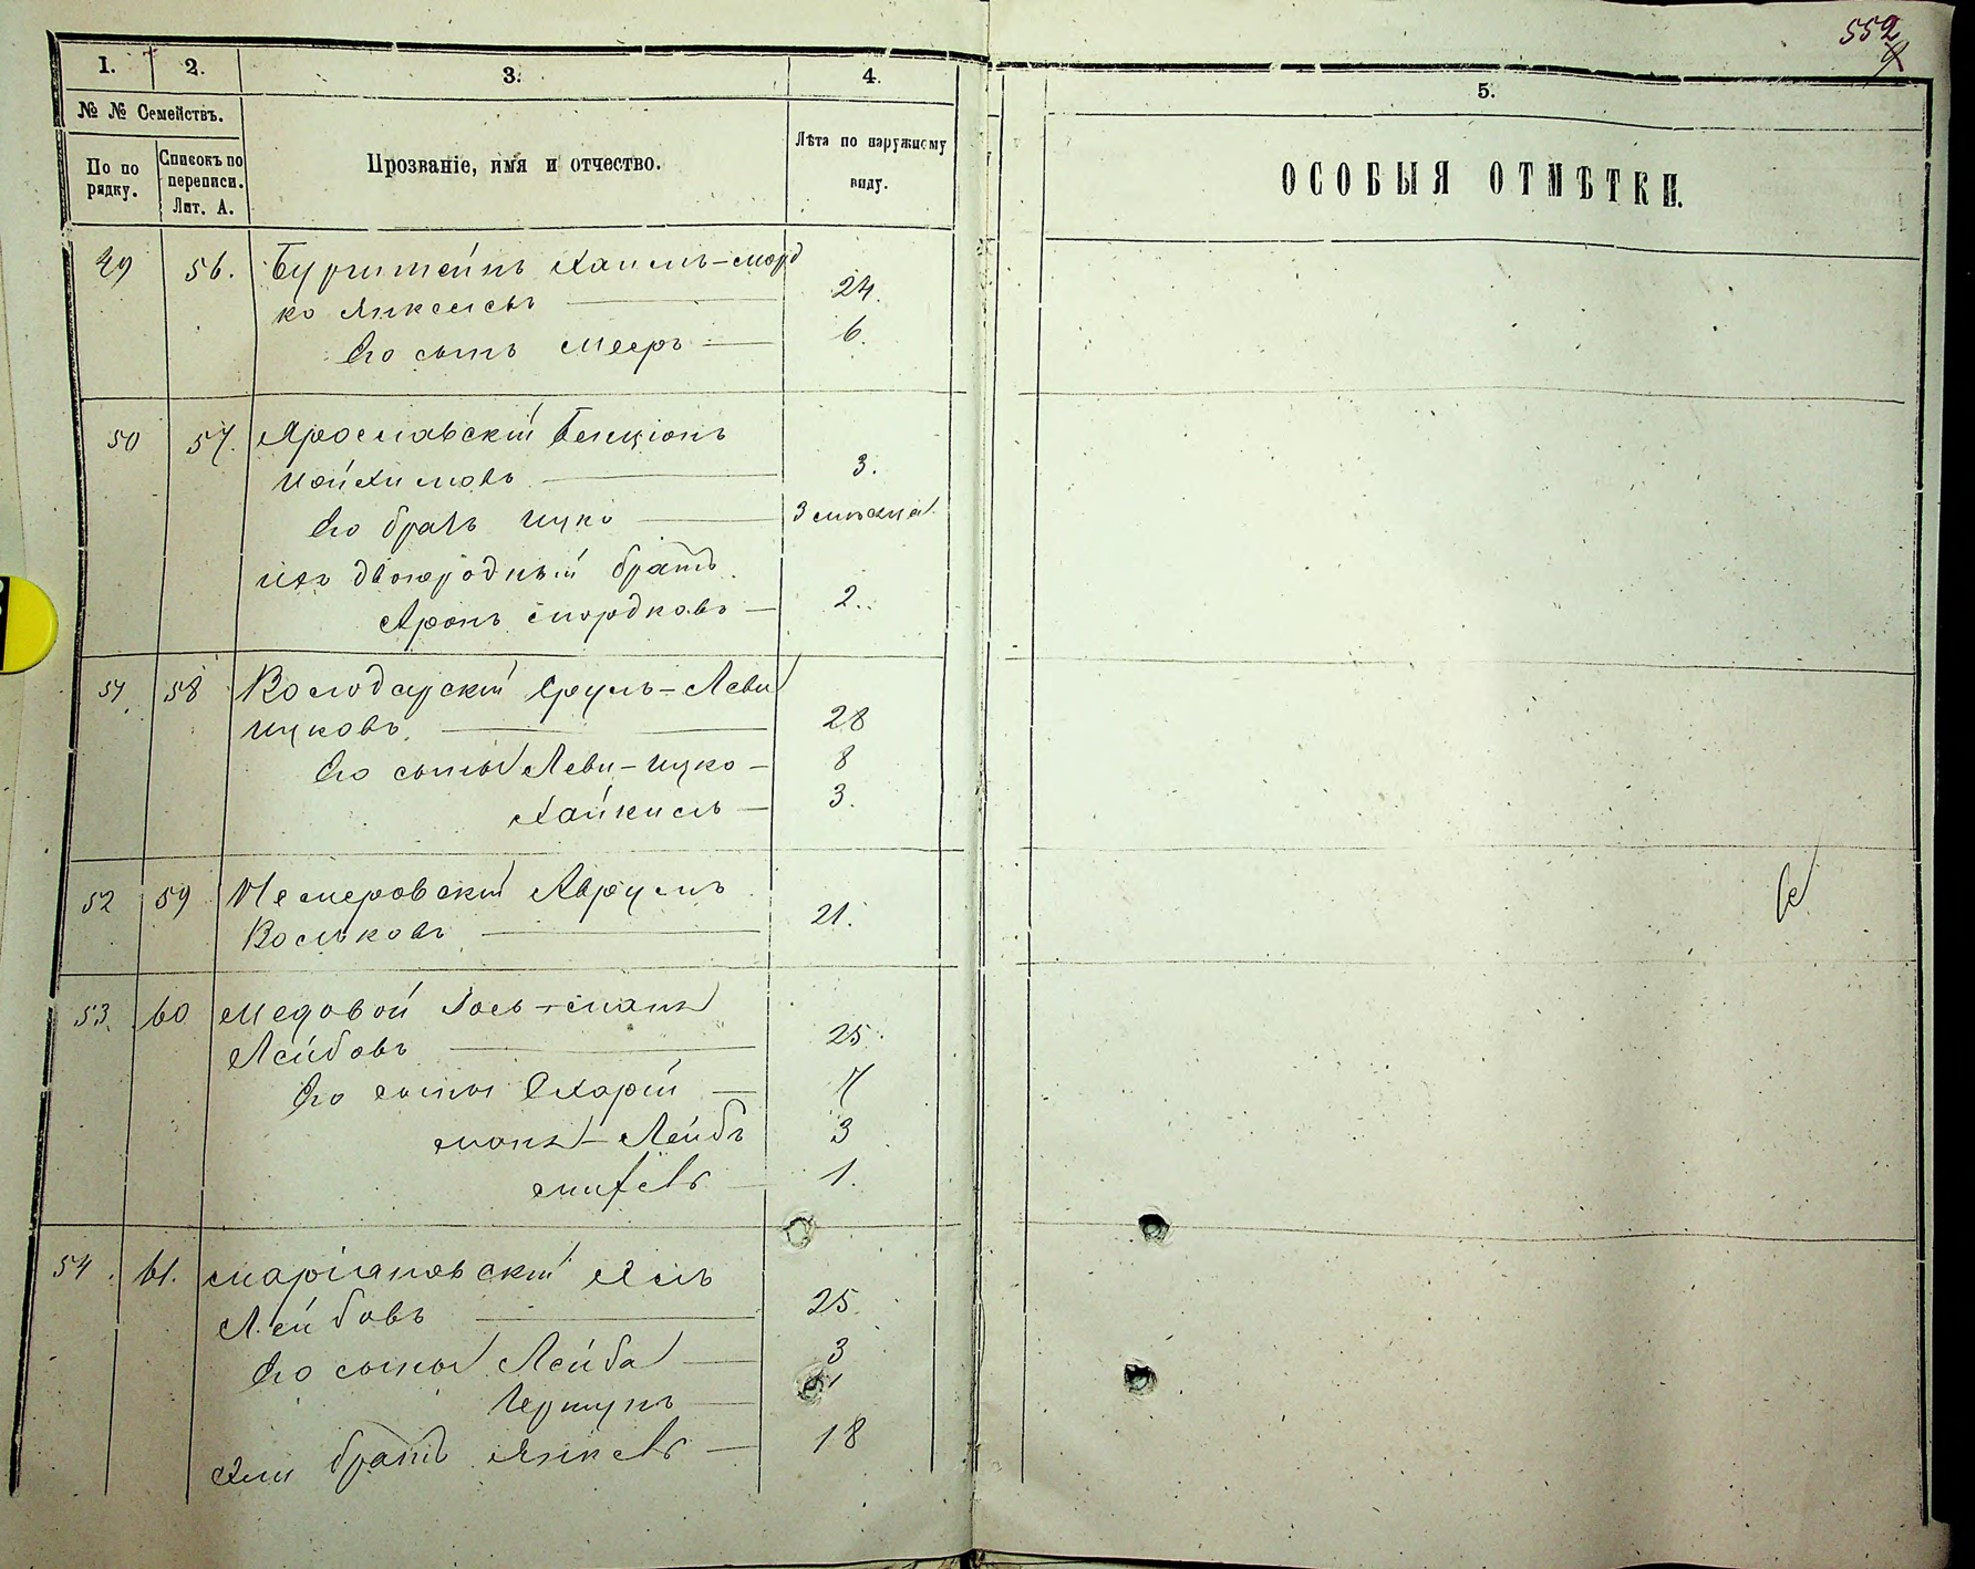 552
1. 2. 3. 4. 5.
№ № Семействъ.
По по рядку.
Списокъ по переписи. Лит. А.
Прозваніе, имя и отчество.
Лѣта по наружному виду.
ОСОБЫЯ ОТМѢТКИ.
49 56. Бурштейнъ Хаимъ-Морд
ко Янкелевъ 24.
Его сынъ Мееръ 6.
50 57. Ярославскій Бенціонъ
Иойхимовъ 3.
Его братъ Ицко 3 мѣсяца
ихъ двоюродный братъ
Аронъ Мордковъ 2.
51 58 Володарскій Сруль-Леви
Ицковъ 28
Его сыны Леви-Ицко 8
Хайкель 3.
52 59 Немеровскій Аврумъ
Вольковъ 21.
53 60 Медовой
Лейбовъ 25
Его сыны 7
Лейбъ 3
1.
54 61. Маріяновскій
Лейбовъ 25
Его сыны Лейба 3
Гершунъ 1
братъ Янкель 18